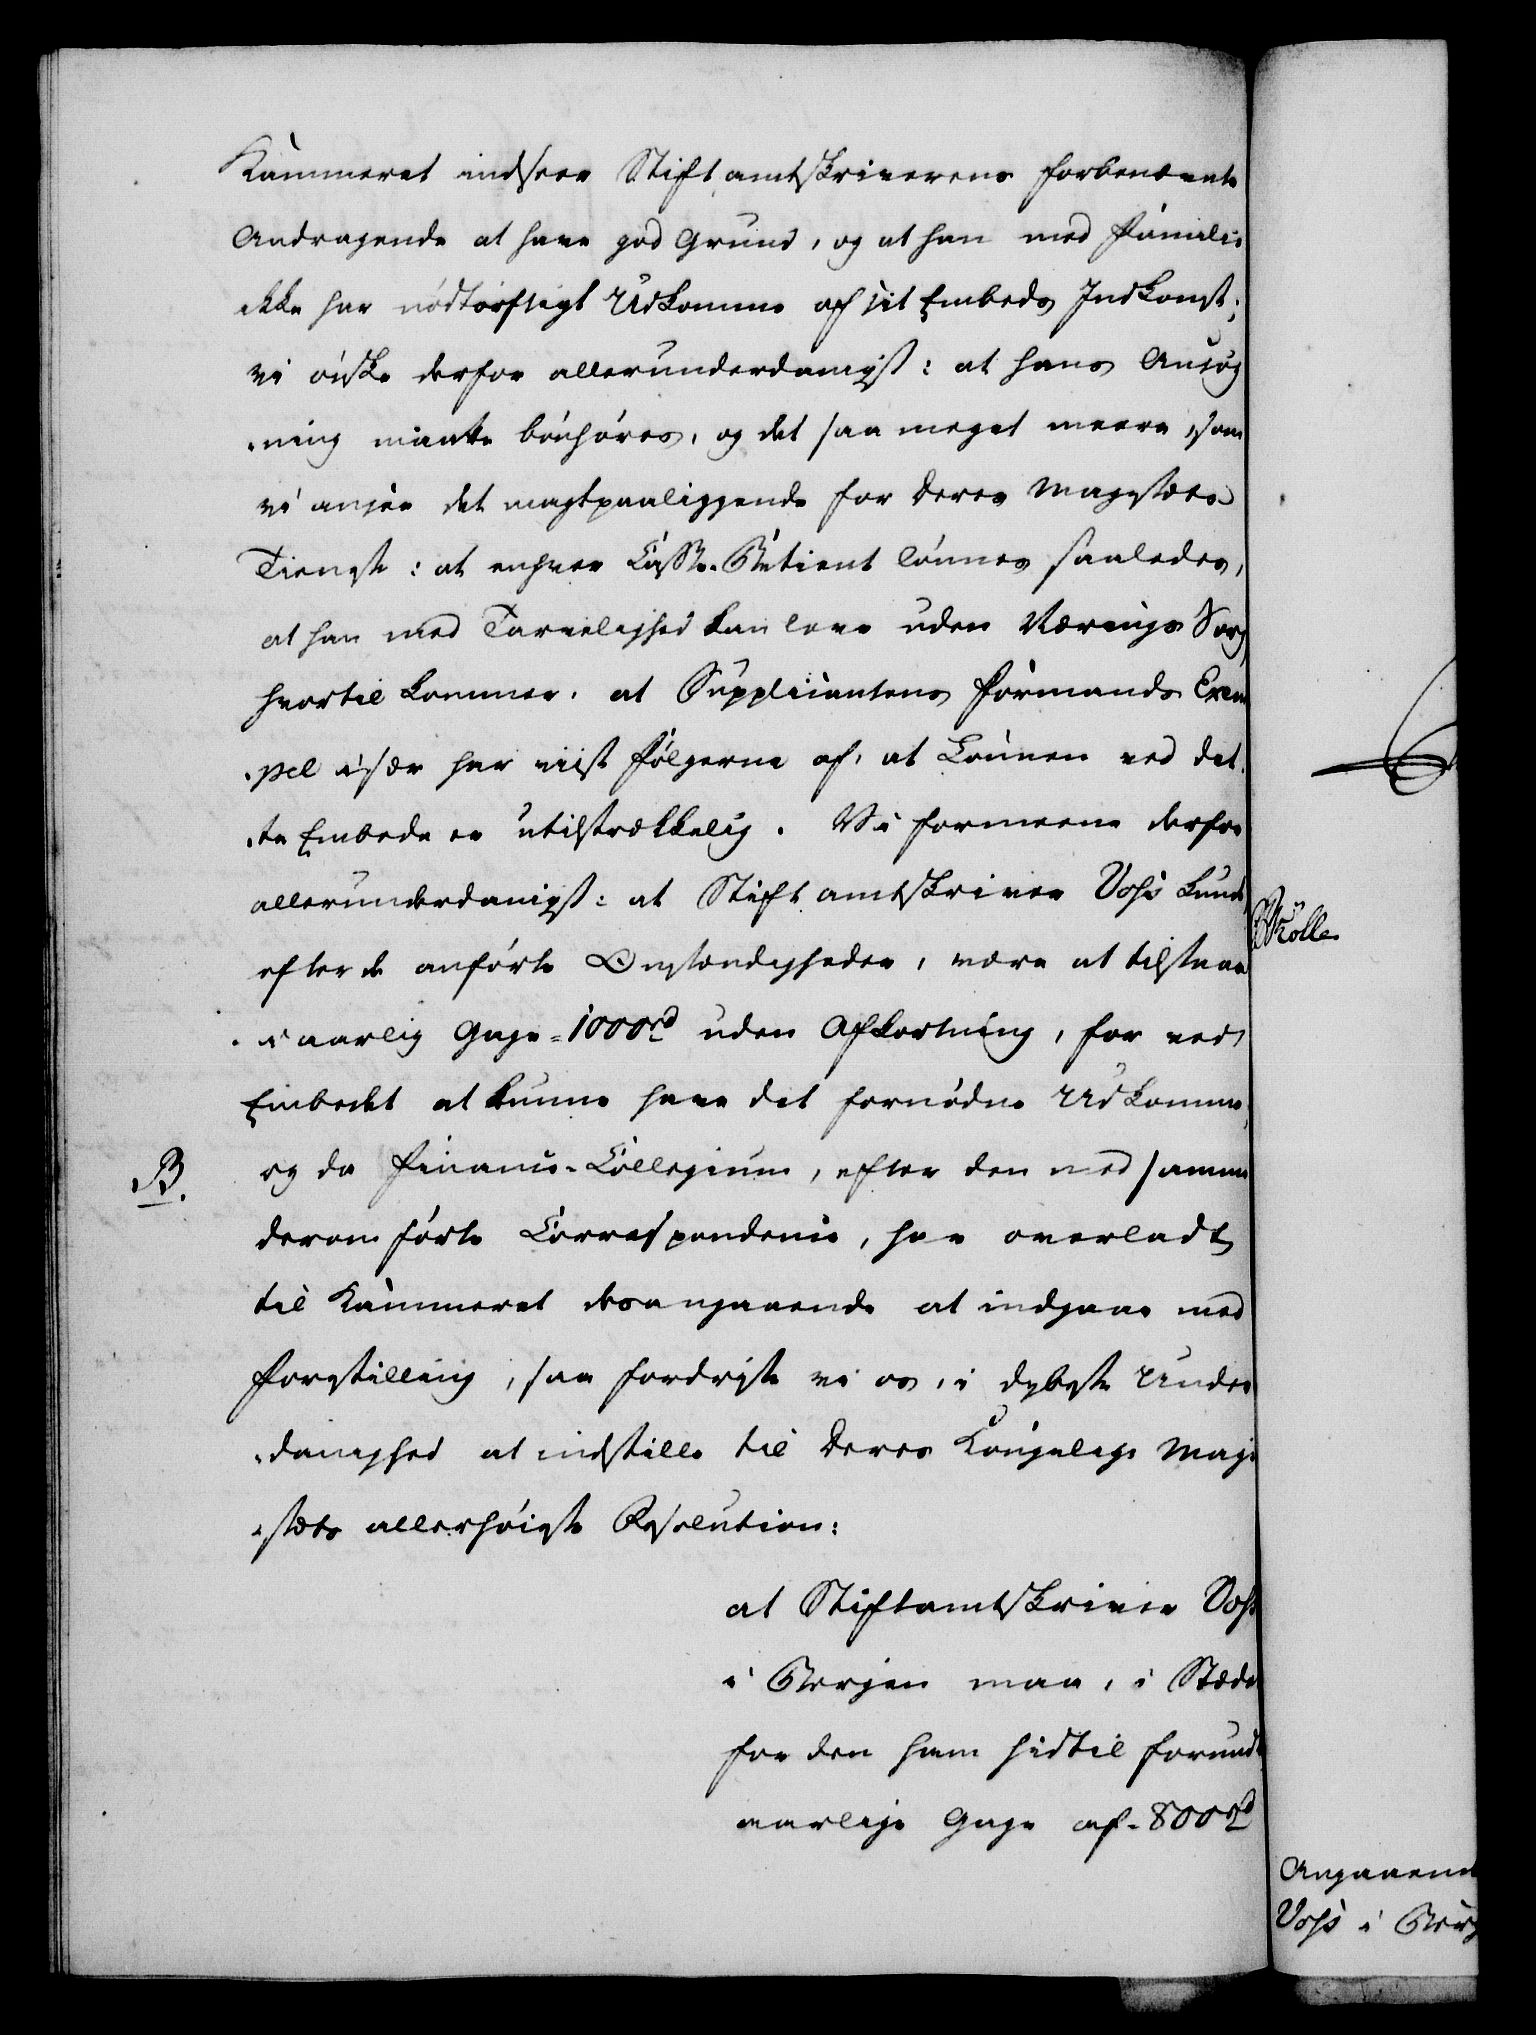 Kammeret indseer Stiftamtskriverens forbenævnte
Andragende at have god Grund, og at han med Familie
ikke har nødtørftigt Udkomme af sit Embeds Indkomst;
vi ønske derfor allerunderdanigst: at hans Ansøg
-ning maatte bønhøres, og det saa meget meere, som
vi ansee det magtpaaliggende for Deres Majestæts
Tieneste: at enhver Casse-Betient lønnes saaledes,
at han med Tarvelighed kan leve uden Nærings Sorg,
hvortil kommer, at Supplicantens Formands Exem
-pel især har viist Følgerne af, at Lønnen ved det
-te Embede er utilstrækkelig. Vi formeene derfor
allerunderdanigst: at Stiftamtskriver Voss kunde,
efter de anførte Omstændigheder, være at tilstaae
i aarlig Gage = 1000 rd uden Afkortning, for ved
Embedet at kunne have det fornødne Udkomme,
B.
og da Finance-Collegium, efter den med samme
derom førte Correspondence, har overladt
til Kammeret desangaaende at indgaae med
Forestilling, saa fordriste vi os, i dybeste Under
-danighed at indstille til Deres Kongelige Maje
-stæts allerhøieste Resolution:
at Stiftamtskriver Voss
i Bergen maa, i Stæde
for den ham hidtil forundte
aarlige Gage af 800 rd
Angaaende
Voss i Berg